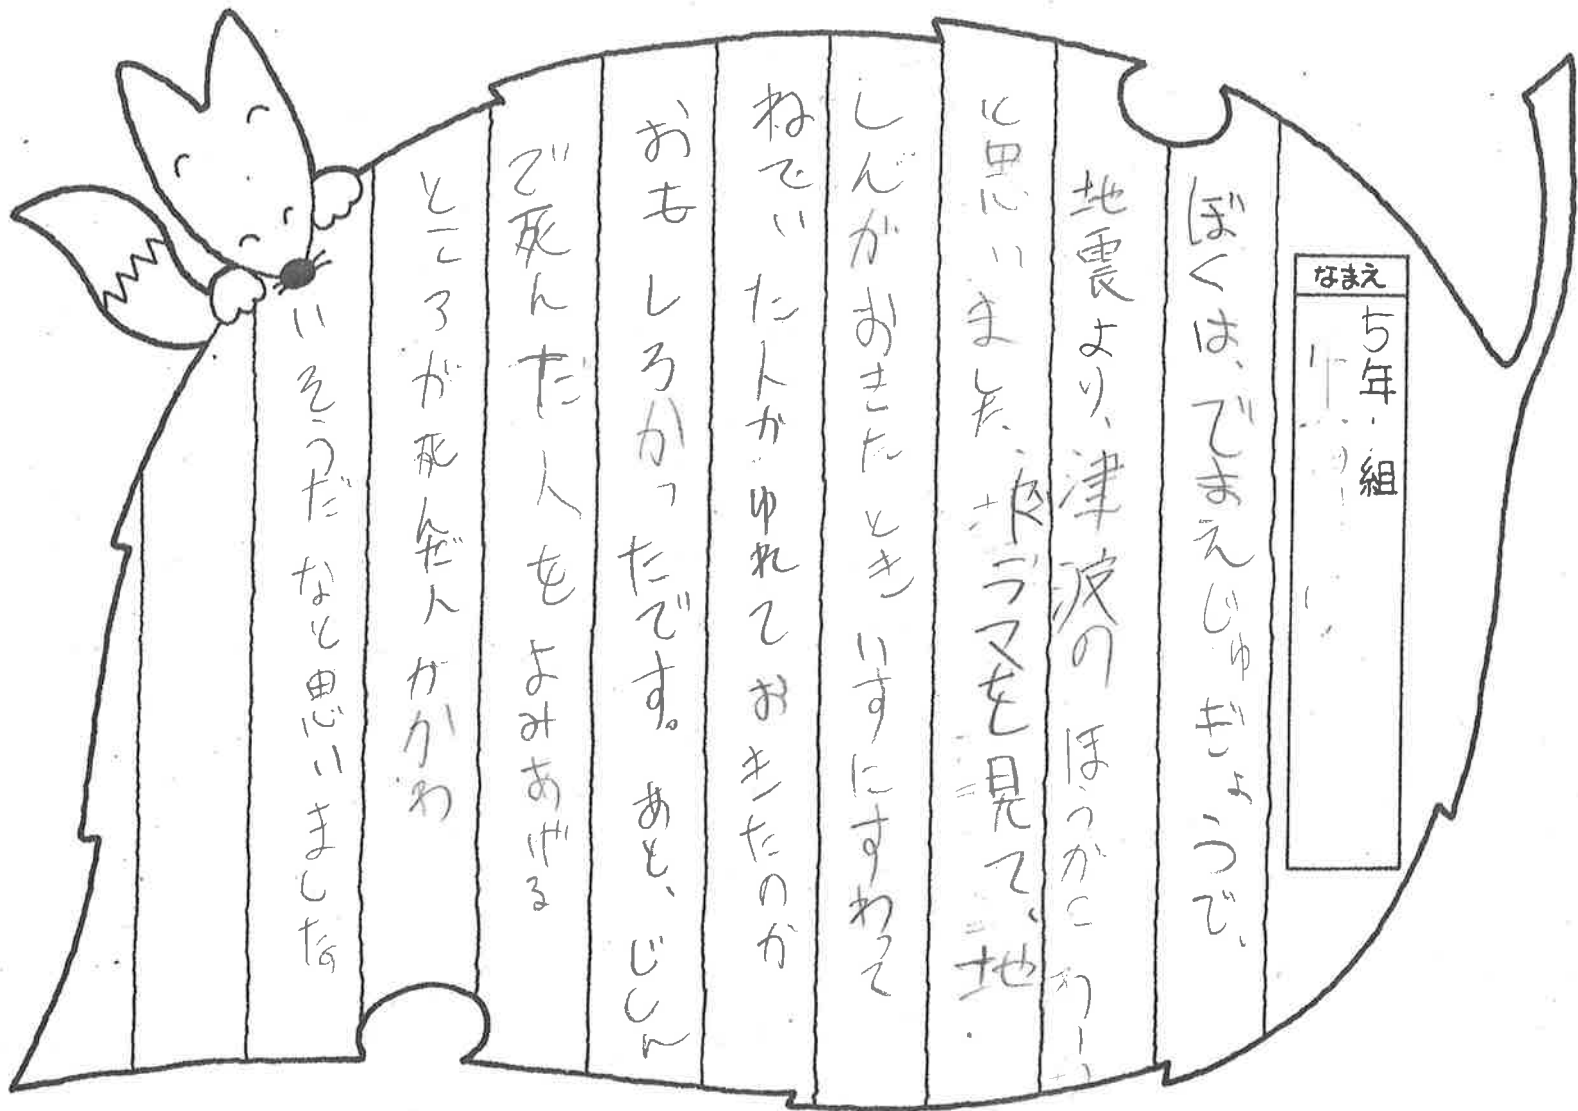 なまえ
5年 組
ぼくは、でまえじゅぎょうで、
地震より、津波のほうがこわい
と思いました、ドラマを見て、地
しんがおきたとき いすにすわって
ねでいた人がゆれておきたのか
おもしろかったです。あと、じしん
で死んだ人をよみあげる
ところが死んだ人がかわ
いそうだなと思いました。